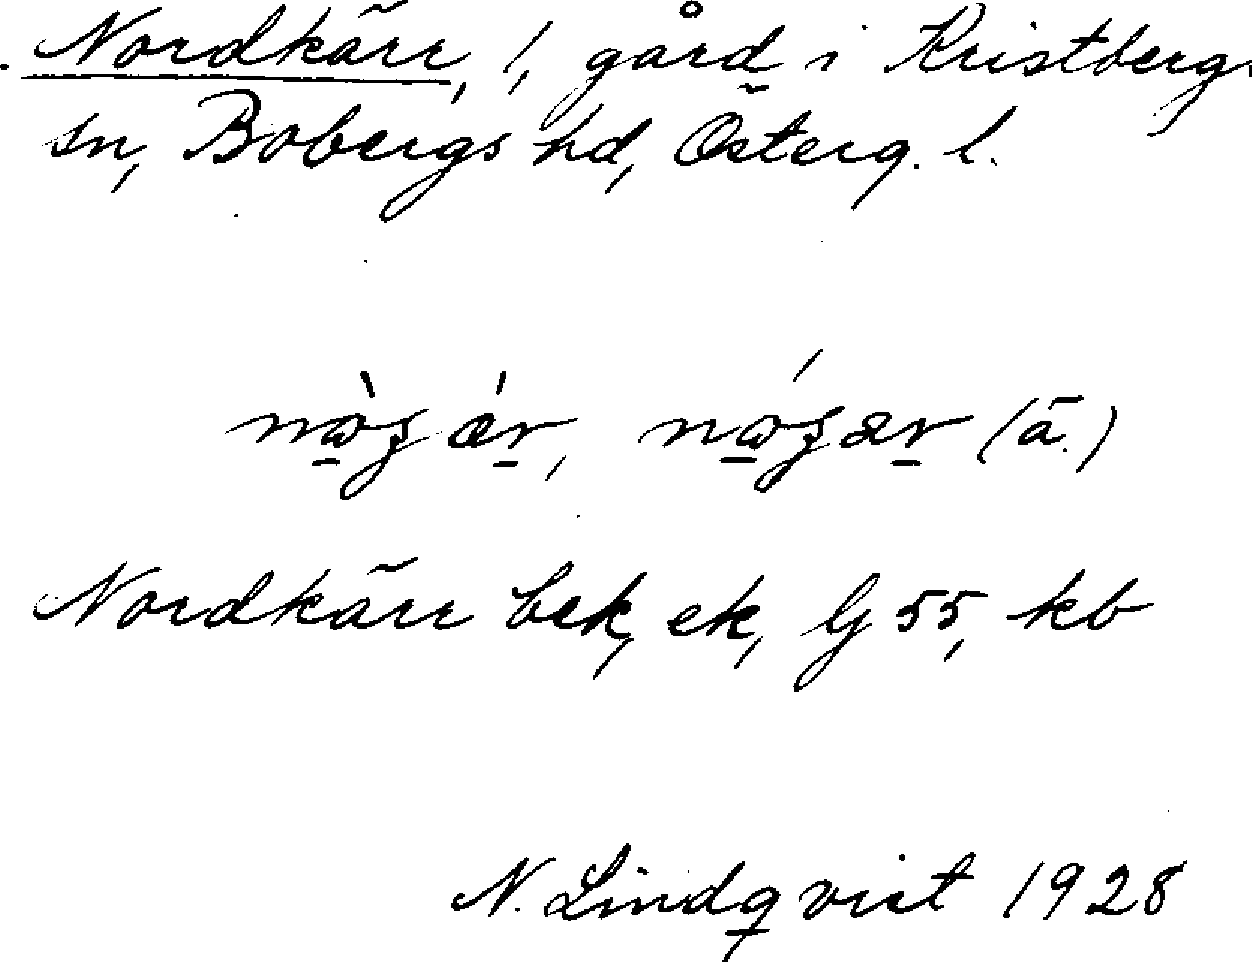 Nordkärr, 1, gård i Kristbergs
sn, Bobergs hd, Österg. l.
(ä.)
Nordkärr bek, ek, lj 55, kb
N. Lindqvist 1928